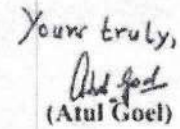 Yours truly,
Atul Goel
(Atul Goel)